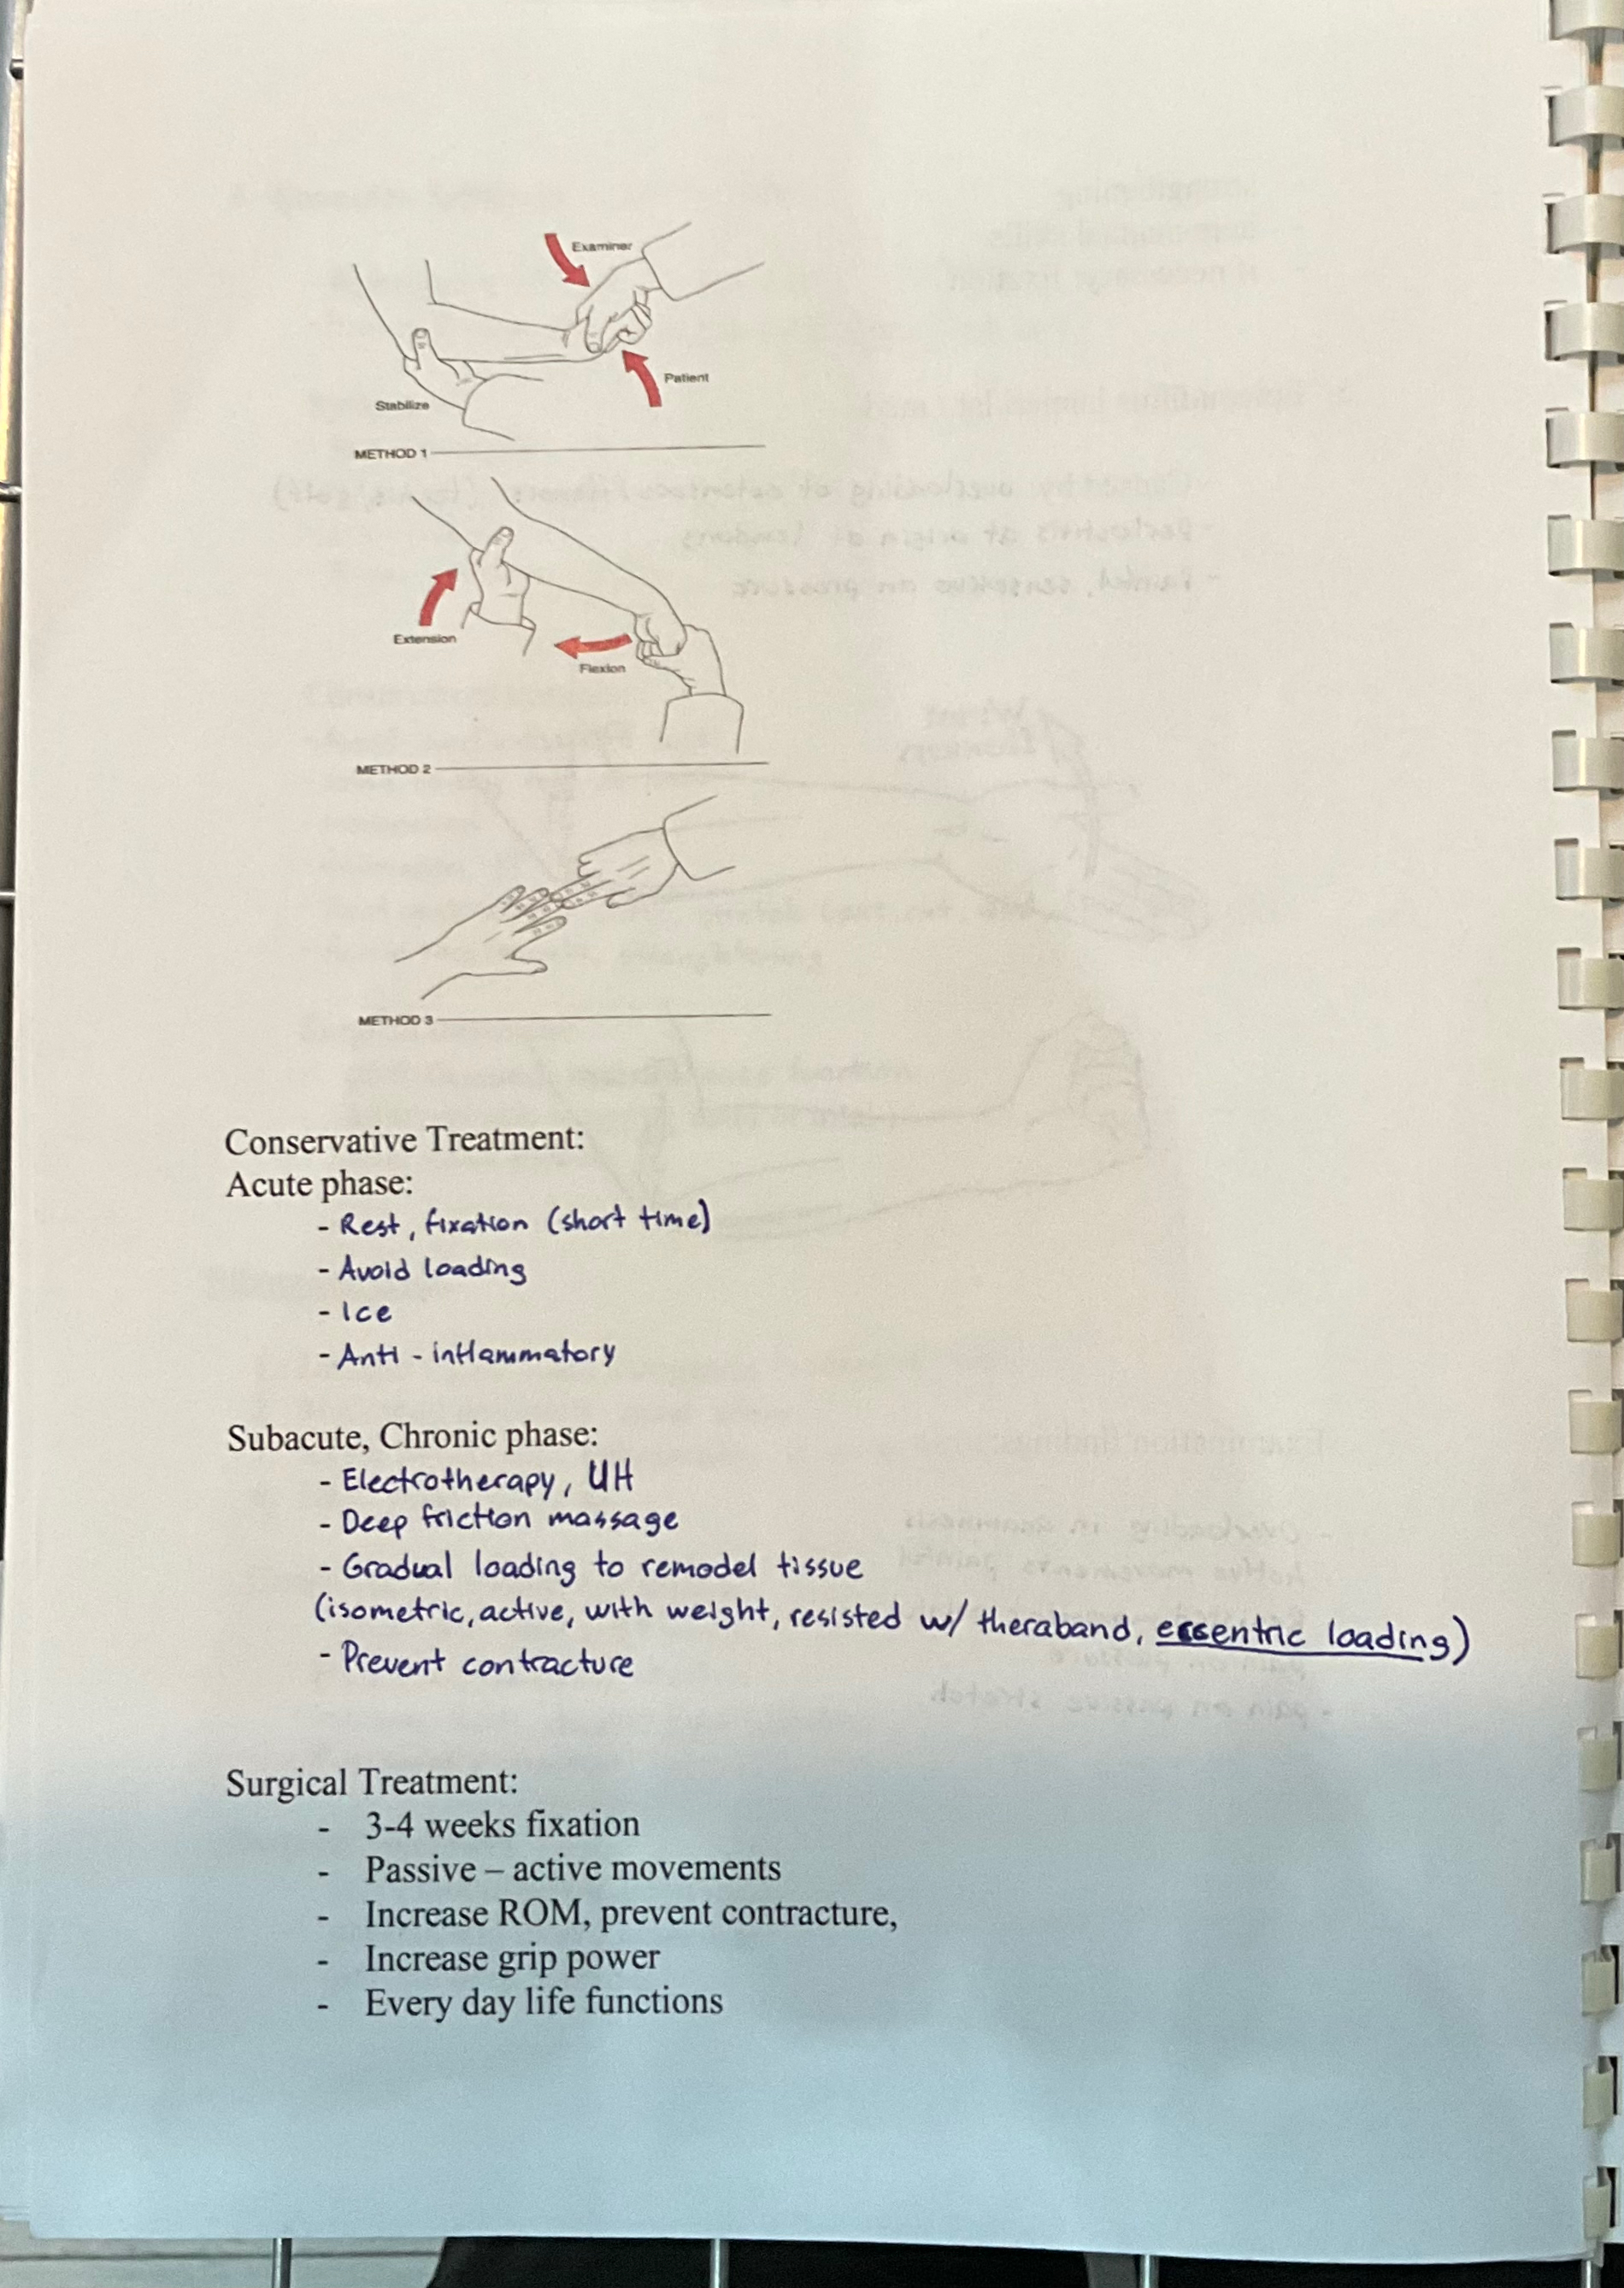 Examiner
Patient
Stabilize
METHOD 1
Extension
Flexion
METHOD 2
METHOD 3
Conservative Treatment:
Acute phase:
- Rest, fixation (short time)
- Avoid loading
- Ice
- Anti-inflammatory
Subacute, Chronic phase:
- Electrotherapy, UH
- Deep friction massage
- Gradual loading to remodel tissue
(isometric, active, with weight, resisted w/ theraband, eccentric loading)
- Prevent contracture
Surgical Treatment:
- 3-4 weeks fixation
- Passive – active movements
- Increase ROM, prevent contracture,
- Increase grip power
- Every day life functions